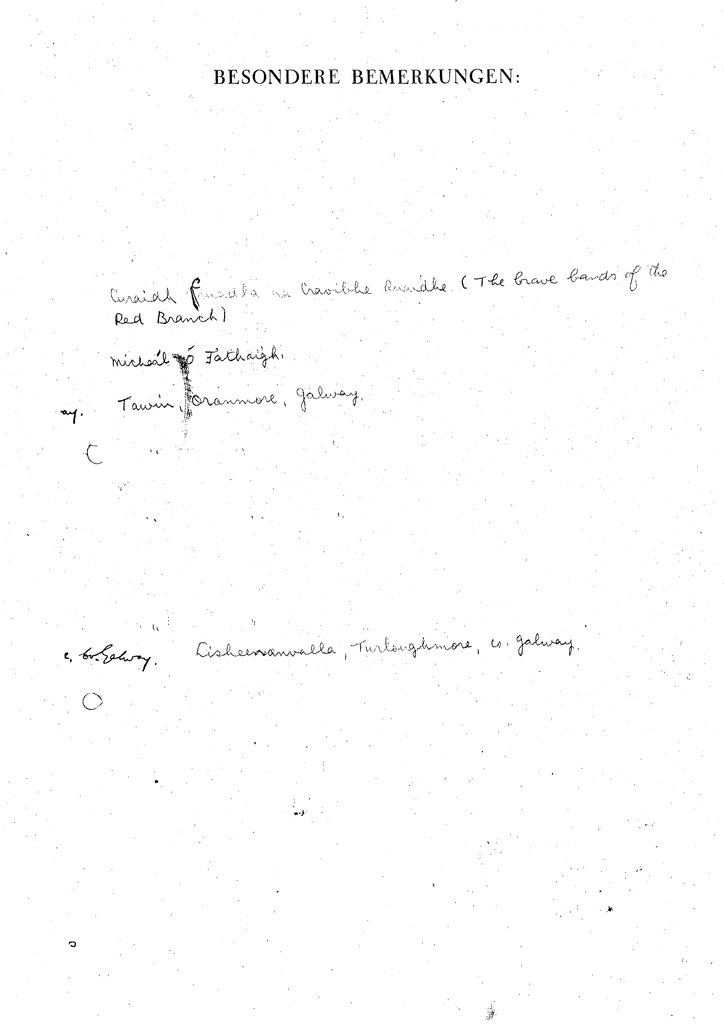 BESONDERE BEMERKUNGEN:
Curaidh na Craoibhe Ruaidhe (The brave bands of the
Red Branch)
Micheál Ó Fathaigh.
Tawin, Oranmore, Galway.
ay.
" 
" " "
"
Co. Galway. Lisheenanvalla, Turloughmore, Co. Galway.